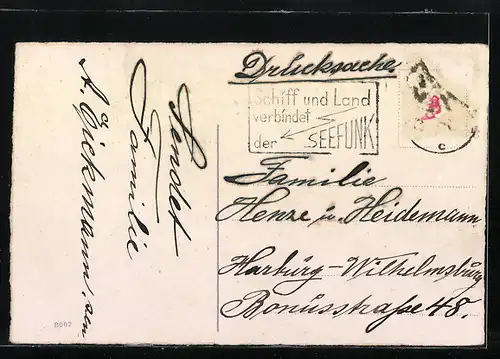 Drucksache.
Schiff und Land
verbindet
der SEEFUNK
c
Familie
Henze u. Heidemann
Harburg-Wilhelmsburg
Bonusstraße 48.
Sendet
Familie
A. Eickmann. sen
R607